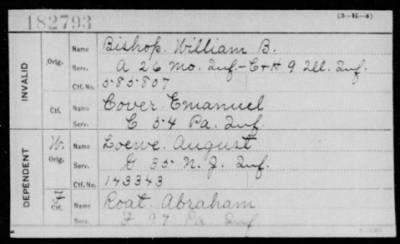 182793
(3-1-4)
INVALID
Orig.
Name Bishop, William B.
Serv. A 26 Mo. Inf - C+K 9 Ill. Inf.
Ctf. No. 585807
Ctf.
Name Cover Emanuel
Serv. C 54 Pa. Inf
DEPENDENT
W.
Orig.
Name Loewe. August
Serv. G 35 N. J. Inf.
Ctf. No. 143343
Ctf.
Name Roat. Abraham
Serv. F 97 Pa Inf